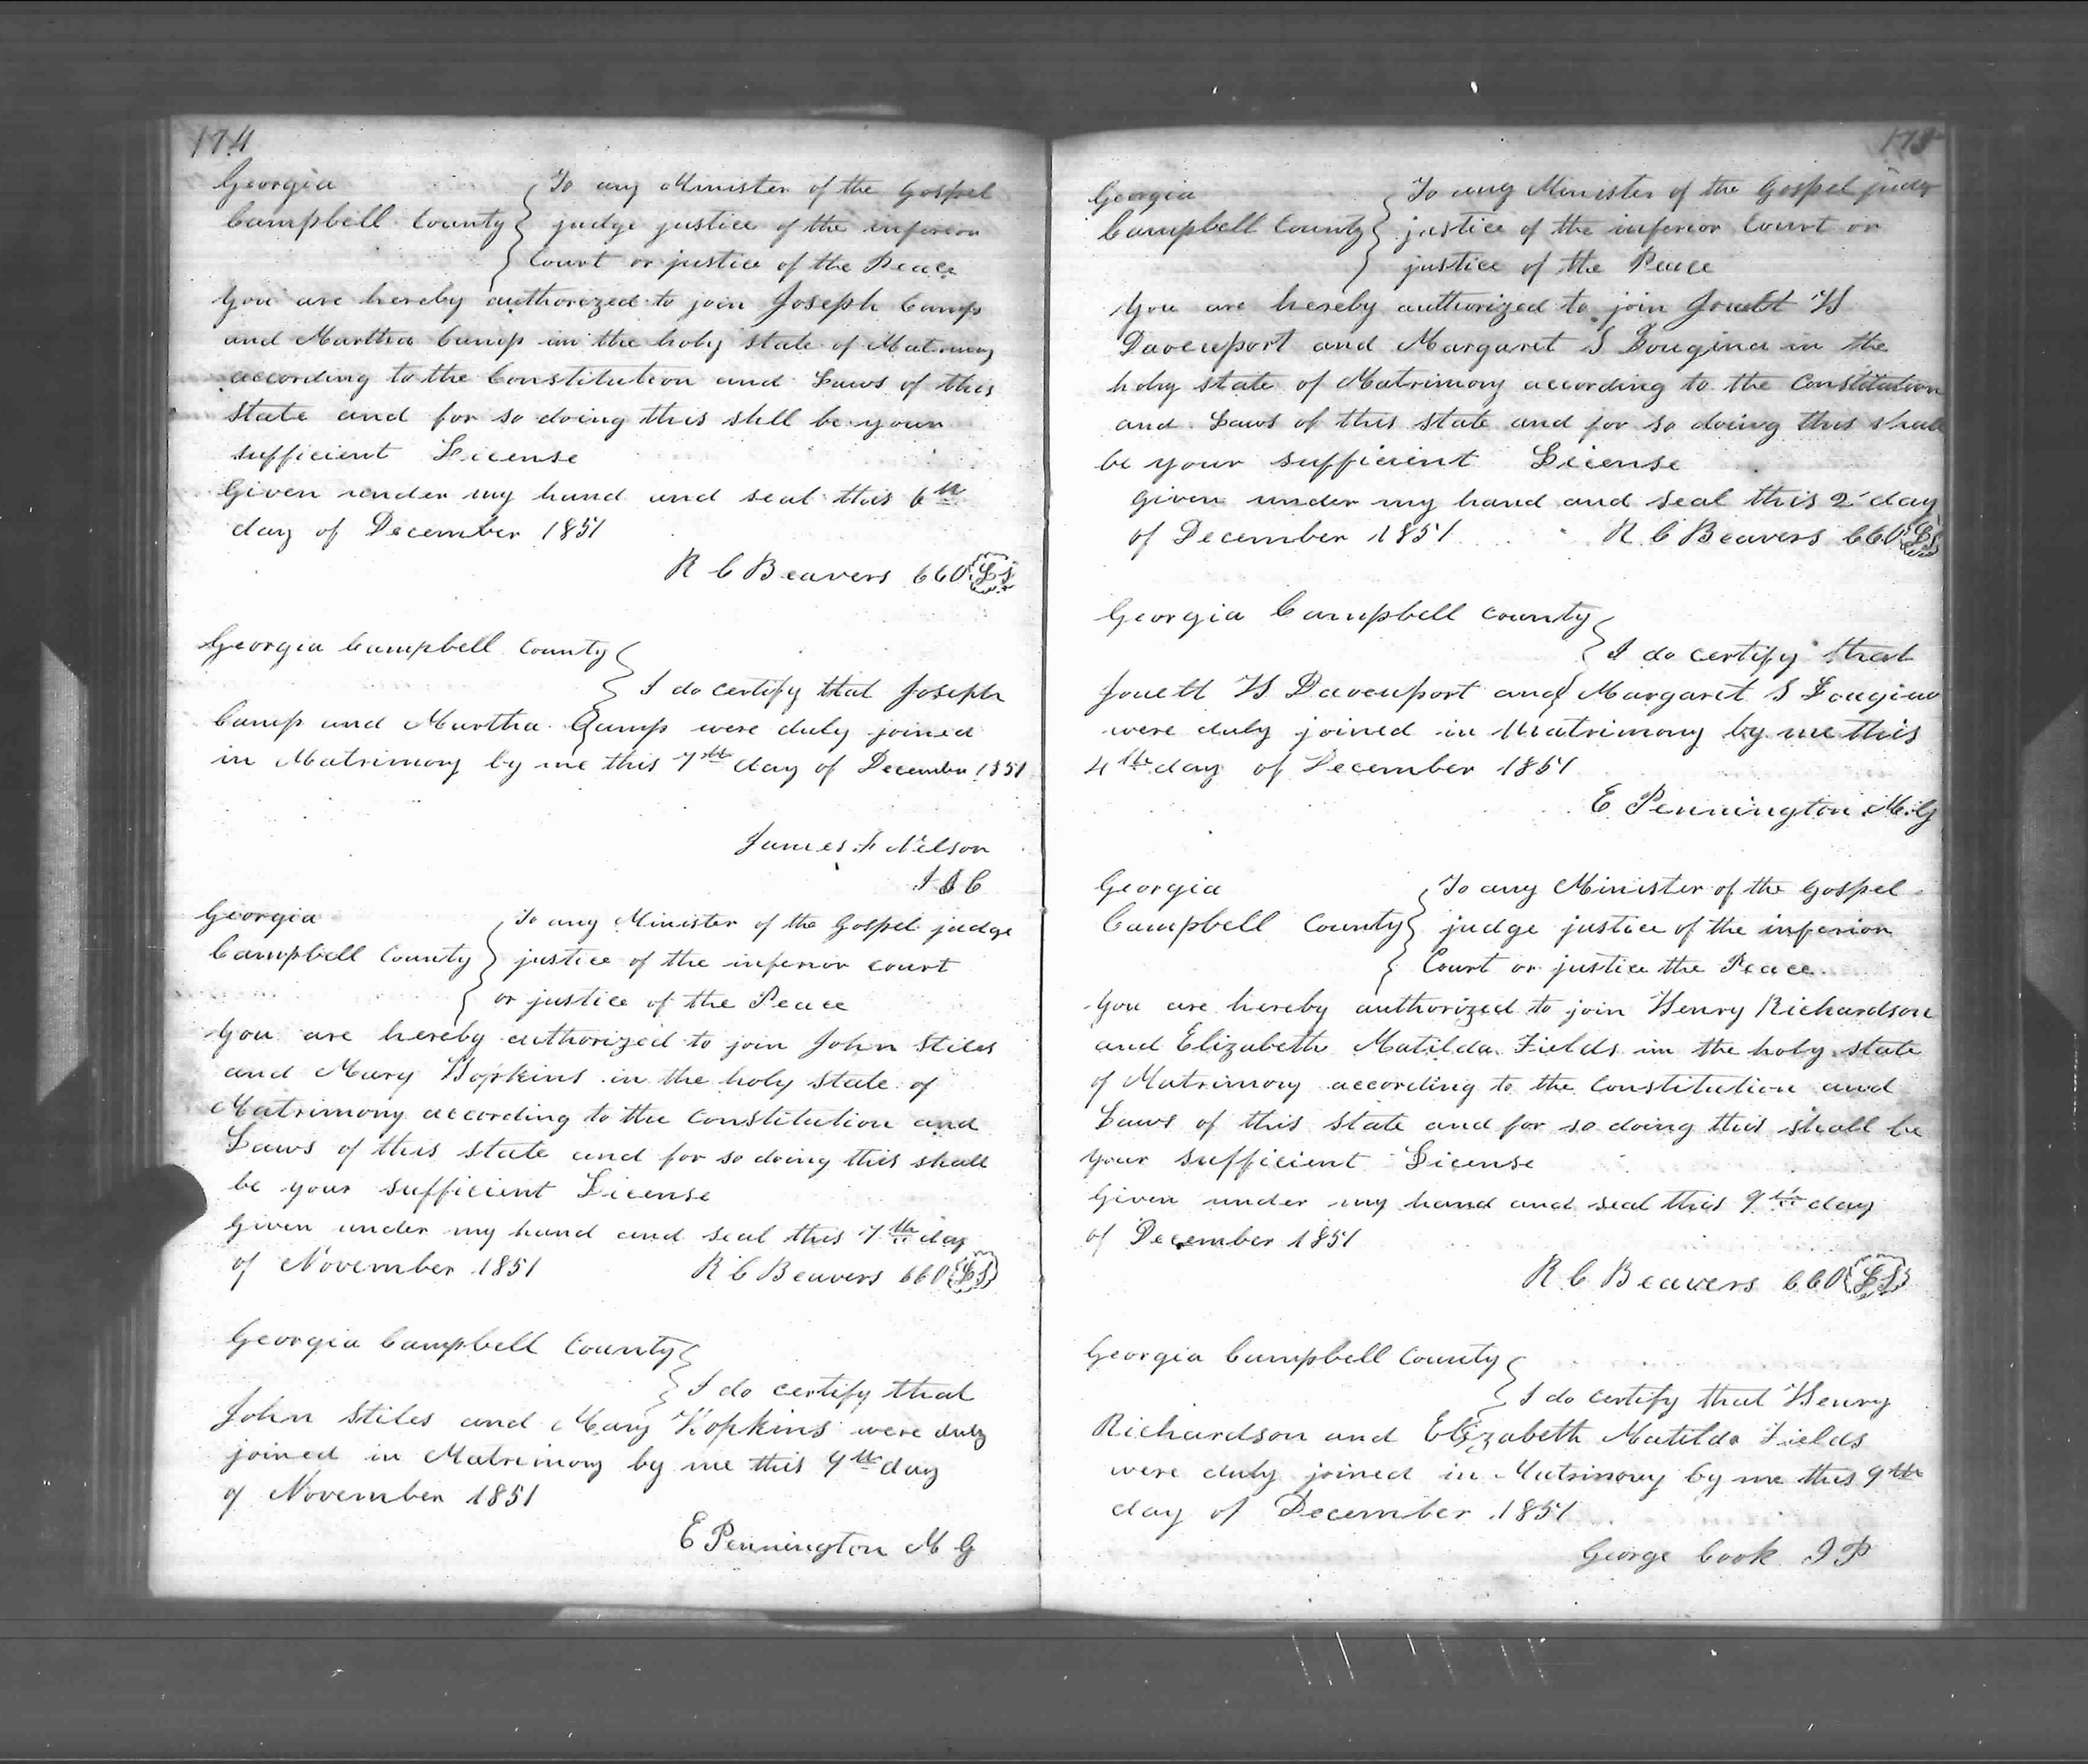 174
Georgia
Campbell County
To any Minister of the Gospel
judge justice of the inferior
Court or justice of the Peace
You are hereby authorized to join Joseph Camp
and Martha Camp in the holy state of Matrimony
according to the Constitution and Laws of this
State and for so doing this shll be your
sufficient License
Given under my hand and seal this 6th
day of December 1851
R C Beavers CCO LS
Georgia Campbell County
I do certify that Joseph
Camp and Martha Camp were duly joined
in Matrimony by me this 7th day of December 1851
James F Nelson
J I C
Georgia
Campbell County
To any Minister of the Gospel judge
justice of the inferior court
or justice of the Peace
You are hereby authorized to join John Stiles
and Mary Hopkins in the holy state of
Matrimony according to the Constitution and
Laws of this State and for so doing this shall
be your sufficient License
Given under my hand and seal this 7th day
of November 1851 R C Beavers CCO LS
Georgia Campbell County
I do certify that
John Stiles and Mary Hopkins were duly
joined in Matrimony by me this 9th day
of November 1851
E Pennington M G
175
Georgia
Campbell County
To any Minister of the Gospel judge
justice of the inferior Court or
justice of the Peace
You are hereby authorized to join Jouett H
Davenport and Margaret S in the
holy state of Matrimony according to the Constitution
and Laws of this State and for so doing this shall
be your sufficient License
given under my hand and seal this 2 day
of December 1851 R C Beavers CCO LS
Georgia Campbell County
I do certify that
Jouett H Davenport and Margaret S
were duly joined in Matrimony by me this
4th day of December 1851
E Pennington M.G
Georgia
Campbell County
To any Minister of the Gospel
judge justice of the inferior
Court or justice the Peace
You are hereby authorized to join Henry Richardson
and Elizabeth Matilda Fields in the holy state
of Matrimony according to the Constitution and
Laws of this State and for so doing this shall be
your sufficient License
Given under my hand and seal this 9th day
of December 1851
R C Beavers CCO LS
Georgia Campbell County
I do certify that Henry
Richardson and Elizabeth Matilda Fields
were duly joined in Matrimony by me this 9th
day of December 1851
George Cook J P